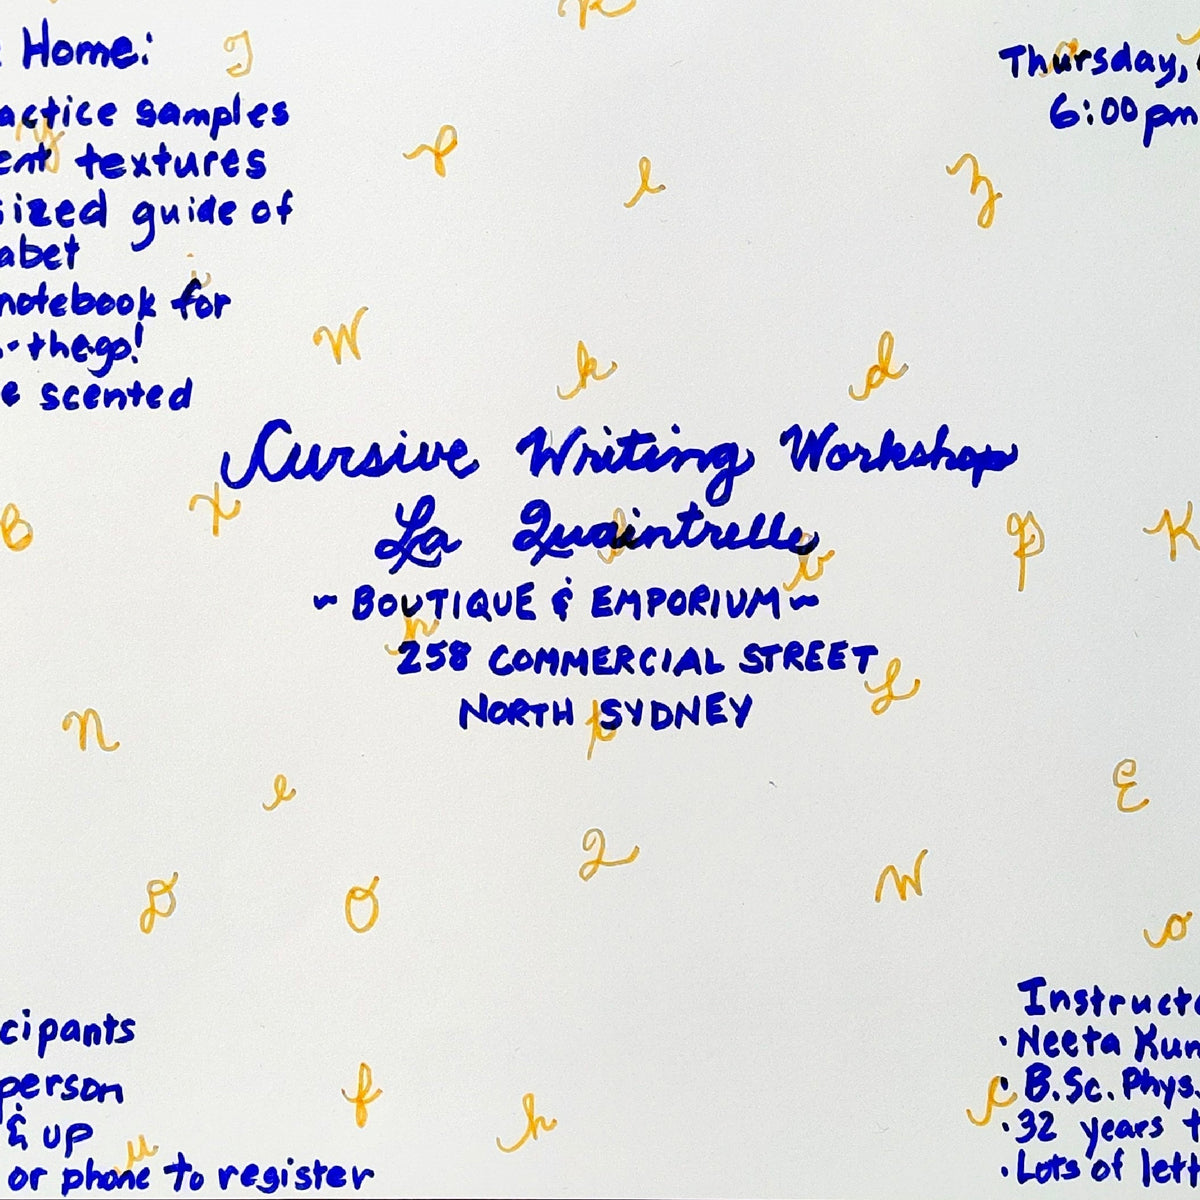 Home:
actice samples
ent textures
sized guide of
abet
notebook for
-thego!
e scented
Thursday,
6:00pm
Cursive Writing Workshop
La Quaintrelle
~ BOUTIQUE & EMPORIUM ~
258 COMMERCIAL STREET
NORTH SYDNEY
cipants
person
& up
or phone to register
Instructo
· Neeta Kun
· B.Sc. Phys.
· 32 years t
· Lots of lett